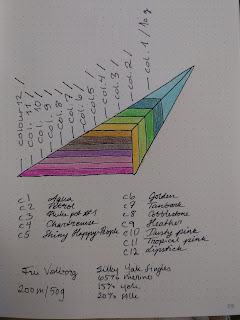 colour 12 /
col. 11 /
col. 10 /
col. 9 /
col. 8 /
col. 7 /
col. 6 /
col. 5 /
col. 4 /
col. 3 /
col. 2 /
col. 1 / 10g
c1 Aqua
c2 Petrol
c3 pot #1
c4 Chartreuse
c5 Shiny Happy People
c6 Golden
c7 Tanbark
c8 Cobblestone
c9 Heather
c10 Dusty pink
c11 Tropical pink
c12 Lipstick
Fru Valborg
200m/50g
Silky Yak Singles
65% Merino
15% Yak
20% Silk